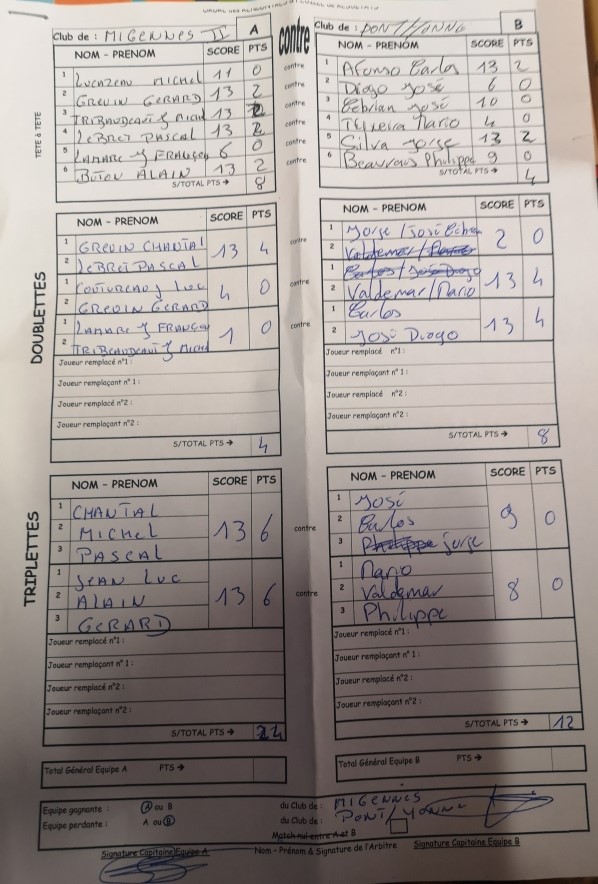 Club de : MIGENNES II A contre Club de : PONT/YONNE B
NOM - PRENOM SCORE PTS NOM - PRENOM SCORE PTS
TETE à TETE
1 LUCAZEAU MICHEL 11 0 contre 1 Afonso Carlos 13 2
2 GREVIN GERARD 13 2 contre 2 Diogo José 6 0
3 TRIBAUDEAUT J Mich 13 2 contre 3 Cebrian José 10 0
4 LeBRET PASCAL 13 2 contre 4 Teixeira Mario 4 0
5 LAMARC J FRANÇOI 6 0 contre 5 Silva Jorge 13 2
6 BUTON ALAIN 13 2 contre 6 Beauvais Philippe 9 0
S/TOTAL PTS → 8 S/TOTAL PTS → 4
DOUBLETTES
NOM - PRENOM SCORE PTS NOM - PRENOM SCORE PTS
1 GREVIN CHANTAL 13 4 contre 1 Jorge / José Cebrian 2 0
2 LeBRET PASCAL 2 Valdemar /
1 COUTUREAU J LUC 4 0 contre 1 Carlos / José Diogo 13 4
2 GREVIN GERARD 2 Valdemar / Mario
1 LAMARC J FRANÇOI 1 0 contre 1 Carlos 13 4
2 TRIBEAUDEAUT J Mich 2 José Diogo
Joueur remplacé n°1 : Joueur remplacé n°1 :
Joueur remplaçant n° 1 : Joueur remplaçant n° 1 :
Joueur remplacé n°2 : Joueur remplacé n°2 :
Joueur remplaçant n°2 : Joueur remplaçant n°2 :
S/TOTAL PTS → 4 S/TOTAL PTS → 8
TRIPLETTES
NOM - PRENOM SCORE PTS NOM - PRENOM SCORE PTS
1 CHANTAL 1 José
2 MICHEL 13 6 contre 2 Carlos 9 0
3 PASCAL 3 Philippe Jorge
1 JEAN LUC 1 Mario
2 ALAIN 13 6 contre 2 Valdemar 8 0
3 GERARD 3 Philippe
Joueur remplacé n°1 : Joueur remplacé n°1 :
Joueur remplaçant n° 1 : Joueur remplaçant n° 1 :
Joueur remplacé n°2 : Joueur remplacé n°2 :
Joueur remplaçant n°2 : Joueur remplaçant n°2 :
S/TOTAL PTS → 24 S/TOTAL PTS → 12
Total Général Equipe A PTS → Total Général Equipe B PTS →
Equipe gagnante : A ou B du Club de : MIGENNES
Equipe perdante : A ou B du Club de : PONT/YONNE
Match nul entre A et B
Signature Capitaine Equipe A Nom - Prénom & Signature de l'Arbitre Signature Capitaine Equipe B